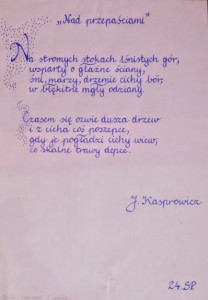 „Nad przepaściami"
Na stromych stokach lśnistych gór,
wsparty o głaźne ściany,
śni, marzy, drzemie cichy bór,
w błękitne mgły odziany.
Czasem się ozwie dusza drzew
i z cicha coś poszepce,
gdy je pogładzi cichy wiew,
co skalne trawy depce.
J. Kasprowicz
24. SP